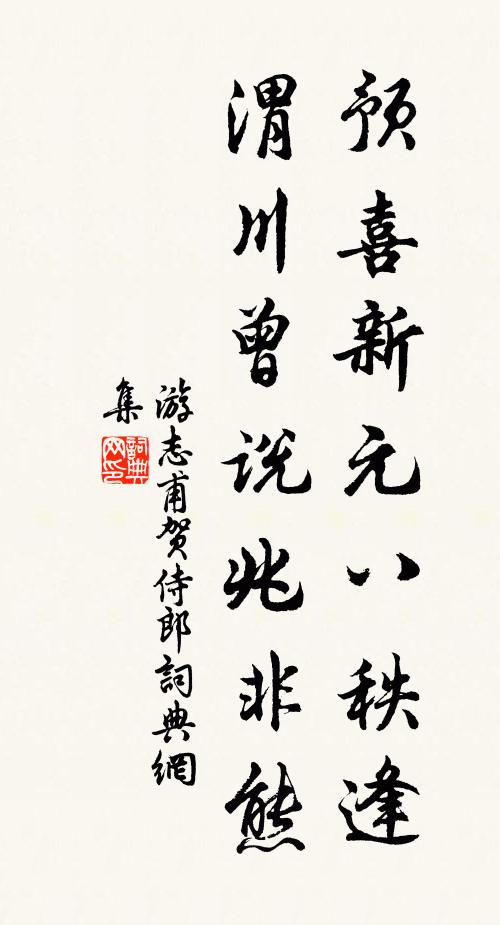 预喜新元八秩逢
渭川曾说兆非熊
游志甫贺侍郎詞典網
集
詞典
网印